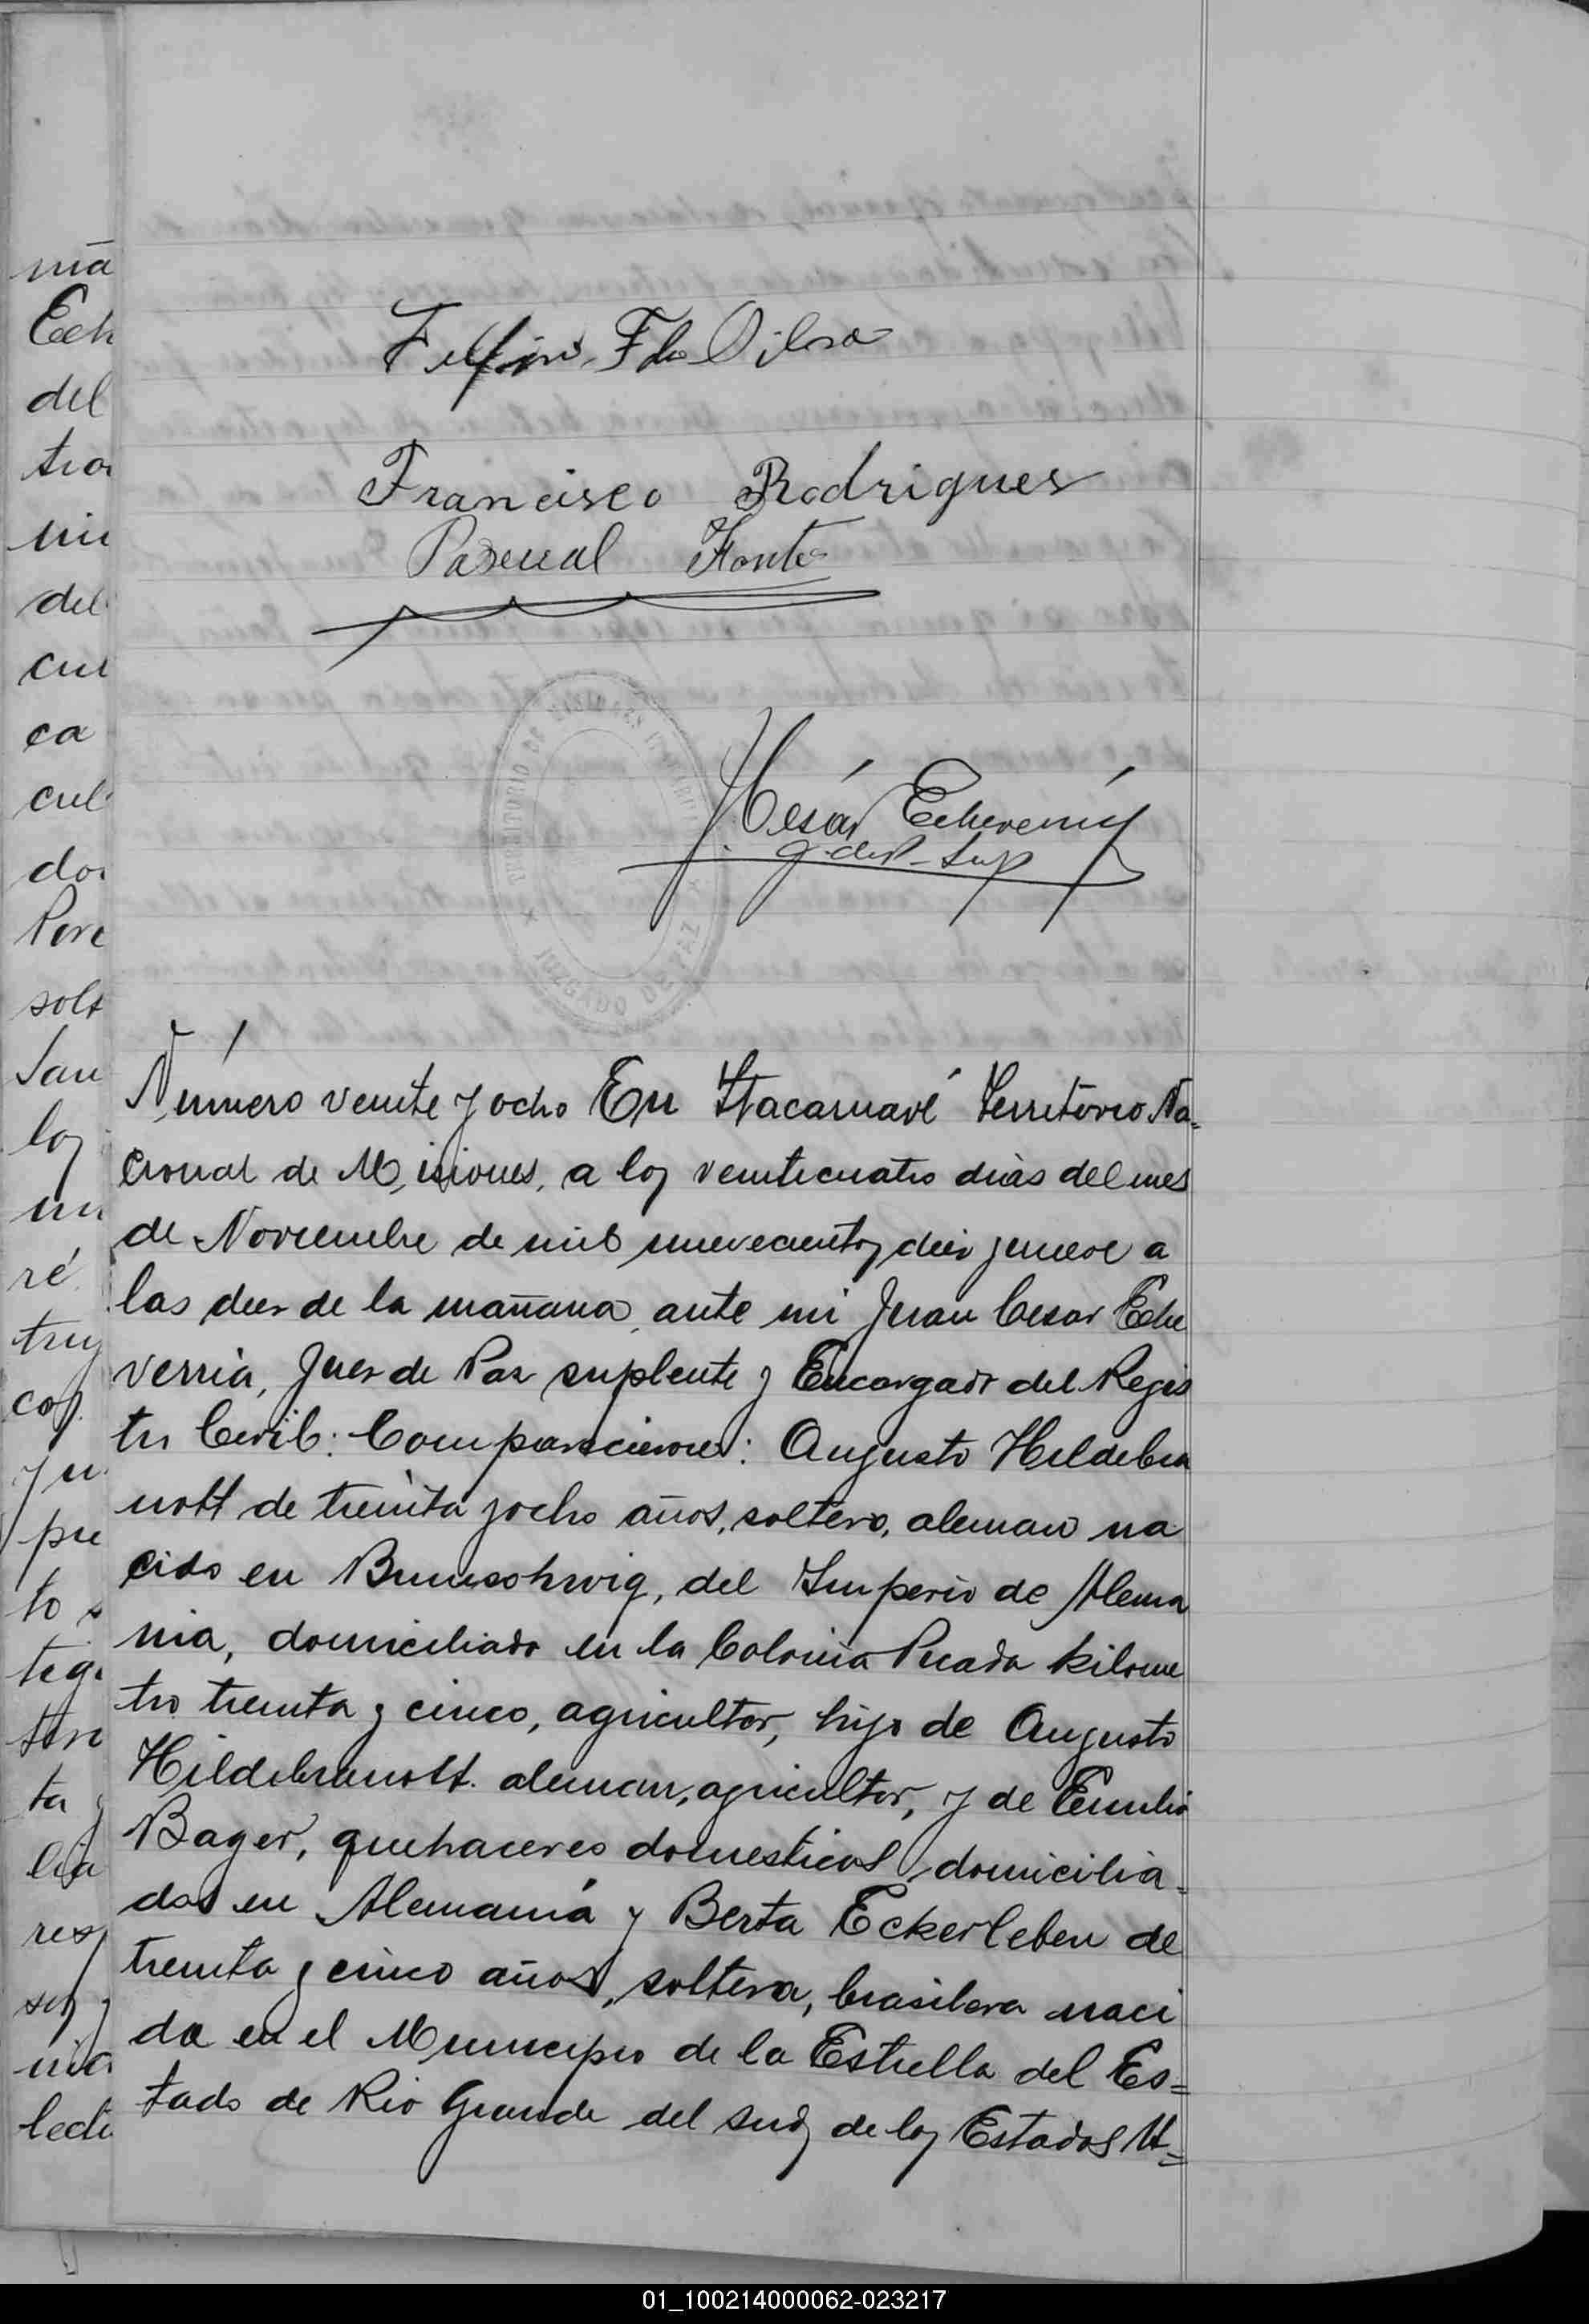 má
Ech
del
tra
mi
del
cur
ca
cul
do
Pere
solt
San
los
un
ré
tug
cog
y u
pre
to s
tig
tire
ta y
lia
res
sey y
nia
lect
Francisco Rodrigues
Pascual Fonte
TERRITORIO DE MISIONES
JUZGADO DE PAZ
J. César Echeverría
J. de P. Sup
Número veinte y ocho En Itacaruaré Territorio Na-
cional de Misiones, a los veinticuatro dias del mes
de Noviembre de mil nuevecientos diez y nueve a
las diez de la mañana, ante mi Juan Cesar Eche
verria, Juez de Paz suplente y Encargado del Regis
tro Civil: Comparecieron: Augusto Hildebra
nott de treinta y ocho años, soltero, aleman na
cido en Brunsohwig, del Imperio de Alema
nia, domiciliado en la Colonia Picada kilome
tro treinta y cinco, agricultor, hijo de Augusto
Hildebranott. aleman, agricultor, y de Emilia
Bager, quehaceres domesticos, domicilia-
dos en Alemania y Berta Eckerleben de
treinta y cinco años, soltera, brasilera naci
da en el Municipio de la Estrella del Es=
tado de Rio Grande del Sud, de los Estados U=
01_100214000062-023217